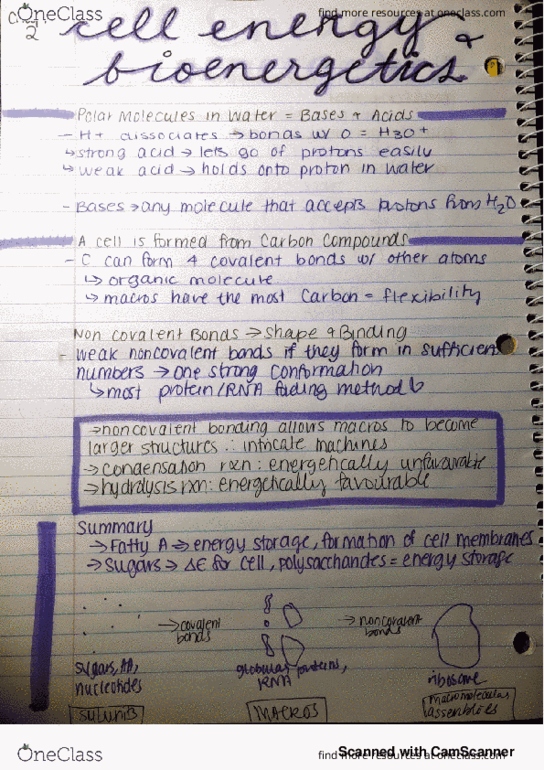 OneClass
find more resources at oneclass.com
OneClass
find more resources at oneclass.com
2
cell energy &
bioenergetics
Polar Molecules in Water = Bases & Acids
- H+ dissociates → bonds w/ O = H3O+
↳ strong acid → lets go of protons easily
↳ weak acid → holds onto proton in water
- Bases → any molecule that accepts protons from H2O
A cell is formed from Carbon Compounds
- C can form 4 covalent bonds w/ other atoms
↳ organic molecule
↳ macros have the most Carbon = flexibility
Non covalent Bonds → Shape & Binding
- weak noncovalent bonds if they form in sufficient
numbers → one strong conformation
↳ most protein/RNA folding method
→ noncovalent bonding allows macros to become
larger structures ∴ intricate machines
→ condensation rxn: energetically unfavourable
→ hydrolysis rxn: energetically favourable
Summary
→ Fatty A → energy storage, formation of cell membranes
→ Sugars → ΔE for cell, polysaccharides = energy storage
→ covalent
bonds
→ noncovalent
bonds
sugars, AA,
nucleotides
globular proteins,
RNA
ribosome
subunits
MACROS
macromolecular
assemblies
OneClass
find more resources at oneclass.com
Scanned with CamScanner
OneClass